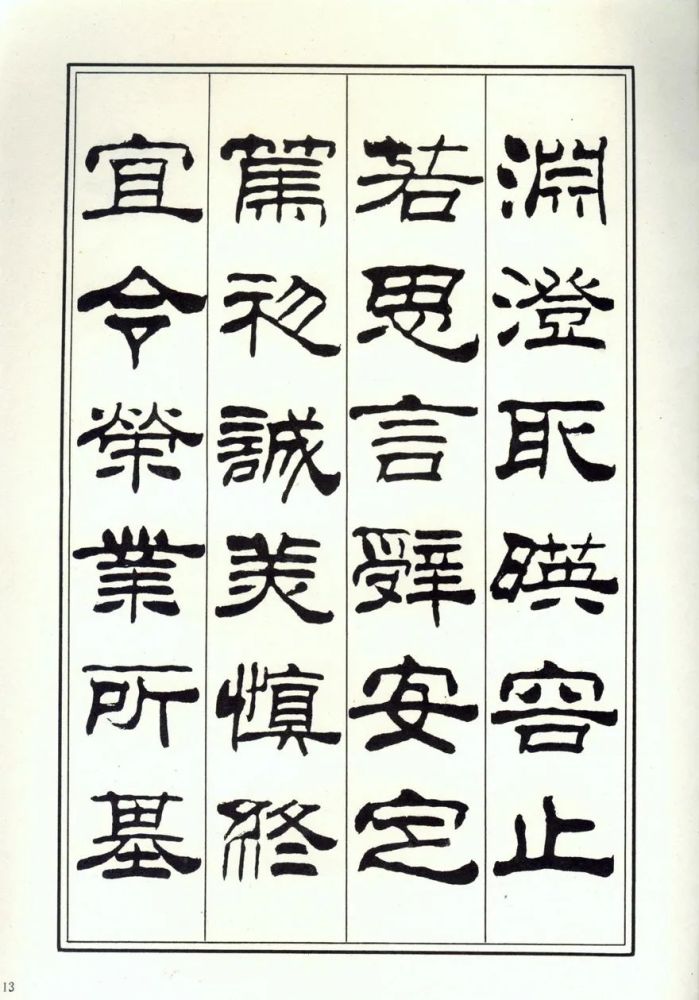 淵澄取暎容止
若思言辭安定
篤初誠美慎終
宜令榮業所基
13